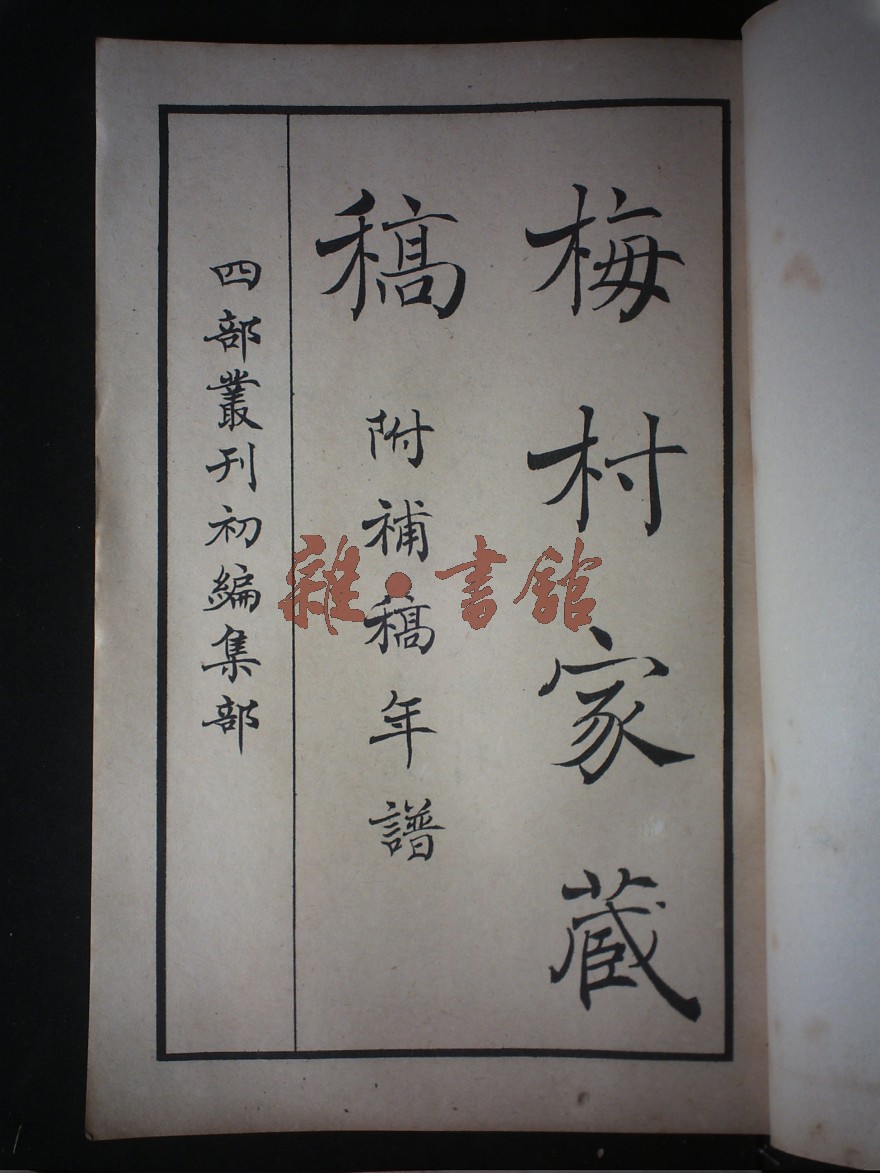 梅村家藏
稿 附補稿年譜
四部叢刊初編集部
雜·書館